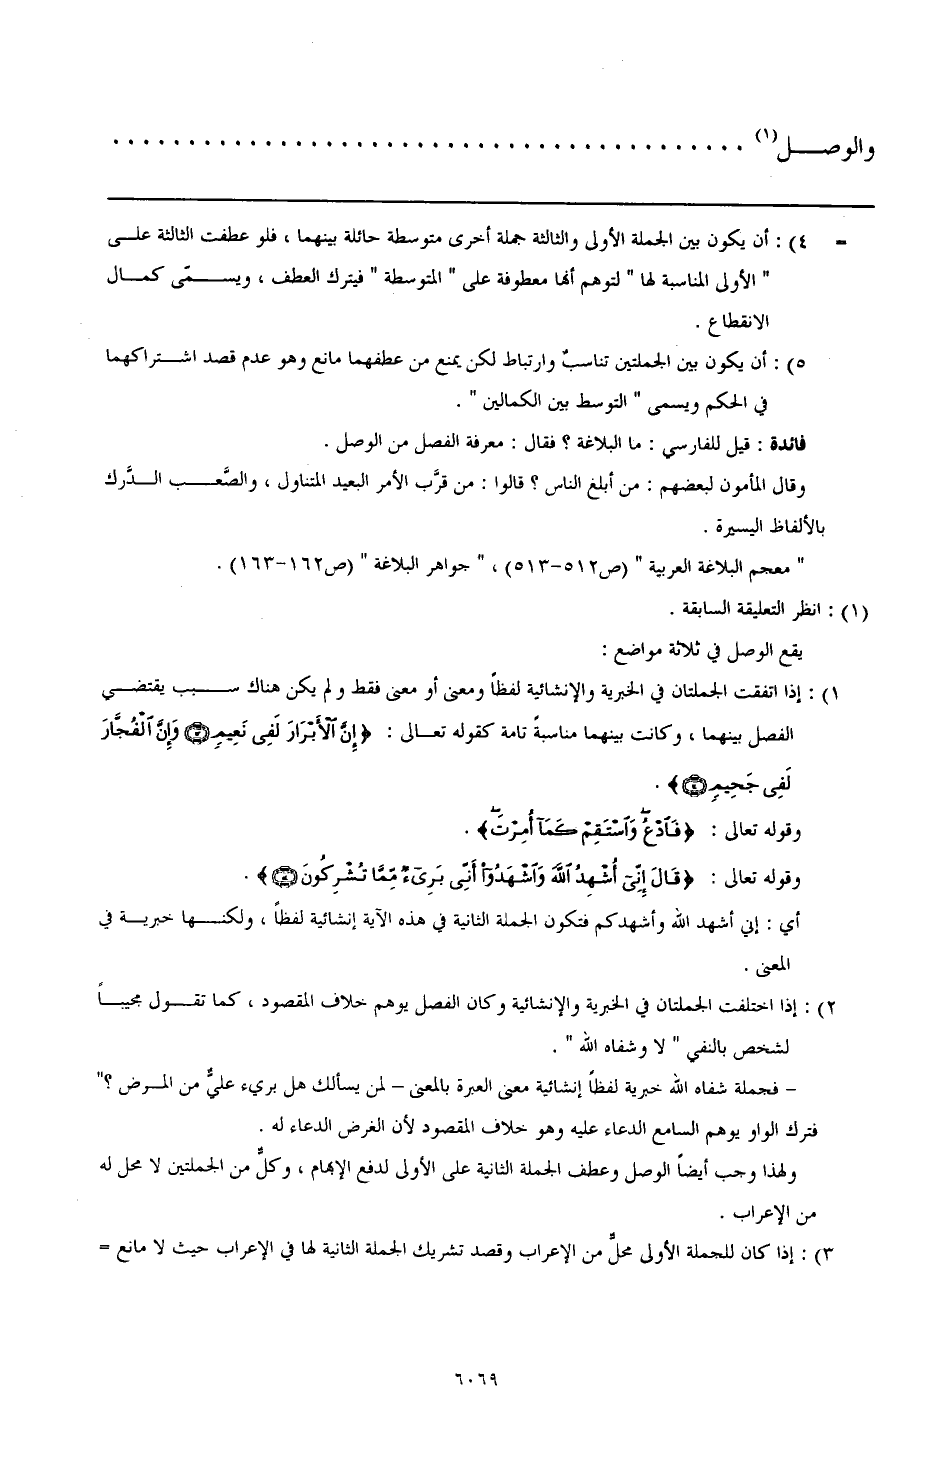 والوصـــل(١) . . . . . . . . . . . . . . . . . . . . . . . . . . . . . . . . . . . . . . . . . .
= ٤) : أن يكون بين الجملة الأولى والثالثة جملة أخرى متوسطة حائلة بينهما ، فلو عطفت الثالثة علـــى
" الأولى المناسبة لها " لتوهم أنها معطوفة على " المتوسطة " فيترك العطف ، ويســـمّى كمـــال
الانقطاع .
٥) : أن يكون بين الجملتين تناسبٌ وارتباط لكن يمنع من عطفهما مانع وهو عدم قصد اشـــتراكهما
في الحكم ويسمى " التوسط بين الكمالين " .
فائدة : قيل للفارسي : ما البلاغة ؟ فقال : معرفة الفصل من الوصل .
وقال المأمون لبعضهم : من أبلغ الناس ؟ قالوا : من قرَّب الأمر البعيد المتناول ، والصَّعـــب الـــدَّرك
بالألفاظ اليسيرة .
" معجم البلاغة العربية " (ص٥١٢-٥١٣) ، " جواهر البلاغة " (ص١٦٢-١٦٣) .
(١) : انظر التعليقة السابقة .
يقع الوصل في ثلاثة مواضع :
١) : إذا اتفقت الجملتان في الخبرية والإنشائية لفظاً ومعنى أو معنى فقط و لم يكن هناك ســـبب يقتضـــي
الفصل بينهما ، وكانت بينهما مناسبةً تامة كقوله تعـــالى : ﴿ إِنَّ ٱلْأَبْرَارَ لَفِى نَعِيمٍ ۝١٣ وَإِنَّ ٱلْفُجَّارَ
لَفِى جَحِيمٍ ۝١٤ ﴾ .
وقوله تعالى : ﴿ فَٱدْعُ ۖ وَٱسْتَقِمْ كَمَآ أُمِرْتَ ۖ ﴾ .
وقوله تعالى : ﴿ قَالَ إِنِّىٓ أُشْهِدُ ٱللَّهَ وَٱشْهَدُوٓا۟ أَنِّى بَرِىٓءٌ مِّمَّا تُشْرِكُونَ ۝٥٤ ﴾ .
أي : إني أشهد الله وأشهدكم فتكون الجملة الثانية في هذه الآية إنشائية لفظاً ، ولكنـــها خبريـــة في
المعنى .
٢) : إذا اختلفت الجملتان في الخبرية والإنشائية وكان الفصل يوهم خلاف المقصود ، كما تقـــول مجيبـــاً
لشخص بالنفي " لا وشفاه الله " .
– فجملة شفاه الله خبرية لفظاً إنشائية معنى العبرة بالمعنى – لمن يسألك هل بريء عليٌّ من المـــرض ؟"
فترك الواو يوهم السامع الدعاء عليه وهو خلاف المقصود لأن الغرض الدعاء له .
ولهذا وجب أيضاً الوصل وعطف الجملة الثانية على الأولى لدفع الإبهام ، وكلٌّ من الجملتين لا محل له
من الإعراب .
٣) : إذا كان للجملة الأولى محلٌّ من الإعراب وقصد تشريك الجملة الثانية لها في الإعراب حيث لا مانع =
٦٠٦٩